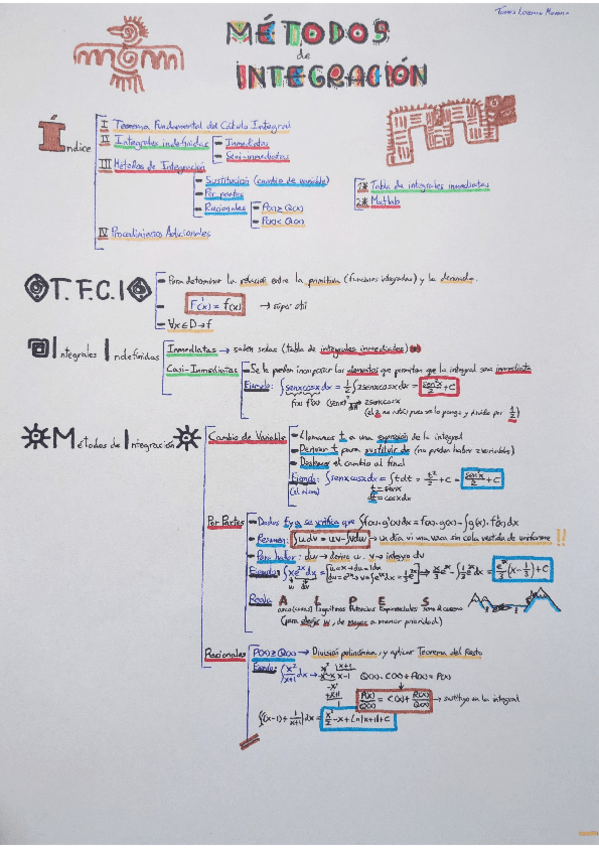 MÉTODOS
de
INTEGRACIÓN
Índice
I Teorema Fundamental del Cálculo Integral
II Integrales indefinidas
- Inmediatas
- Semi-inmediatas
III Métodos de Integración
- Sustitución (cambio de variable)
- Por partes
- Racionales
- P(x) ≥ Q(x)
- P(x) < Q(x)
IV Procedimientos Adicionales
1* Tabla de integrales inmediatas
2* Matlab
T.F.C.I
- Para determinar la relación entre la primitiva (funciones integradas) y la derivada.
- F'(x) = f(x) → súper útil
- ∀x∈D→f
Integrales Indefinidas
Inmediatas → saben solas (tabla de integrales inmediatas)
Casi-Inmediatas
- Se le pueden incorporar los elementos que permiten que la integral sea inmediata
Ejemplo: ∫senxcosxdx = 1/2∫2senxcosxdx = sen²x/2 + C
(el 2 no está; pues se lo pongo y divido por 1/2)
Métodos de Integración
Cambio de Variable
- Llamamos t a una expresión de la integral
- Derivar t para sustituir dx (no pueden haber 2 variables)
- Deshacer el cambio al final
Ejemplo: ∫senxcosxdx = ∫tdt = t²/2 + C = sen²x/2 + C
(el mismo)
t = senx
dt = cosxdx
Por Partes
- Dados f y g se verifica que ∫f(x)·g'(x)dx = f(x)·g(x) - ∫g(x)·f'(x)dx
- Resumen: ∫u dv = uv - ∫v du → un día vi una vaca sin cola vestida de uniforme !!
- Para hallar: du → derivo u · v → integro dv
Regla: A L P E S
Logaritmos Potencias Exponenciales
(para elegir u, de mayor a menor prioridad)
Racionales
P(x) ≥ Q(x) → División polinómica, y aplicar Teorema del Resto
Ejemplo: ∫x²/x+1 dx →
Q(x)·C(x) + R(x) = P(x)
P(x)/Q(x) = C(x) + R(x)/Q(x) → sustituyo en la integral
∫((x-1) + 1/x+1)dx = x²/2 - x + Ln|x+1| + C